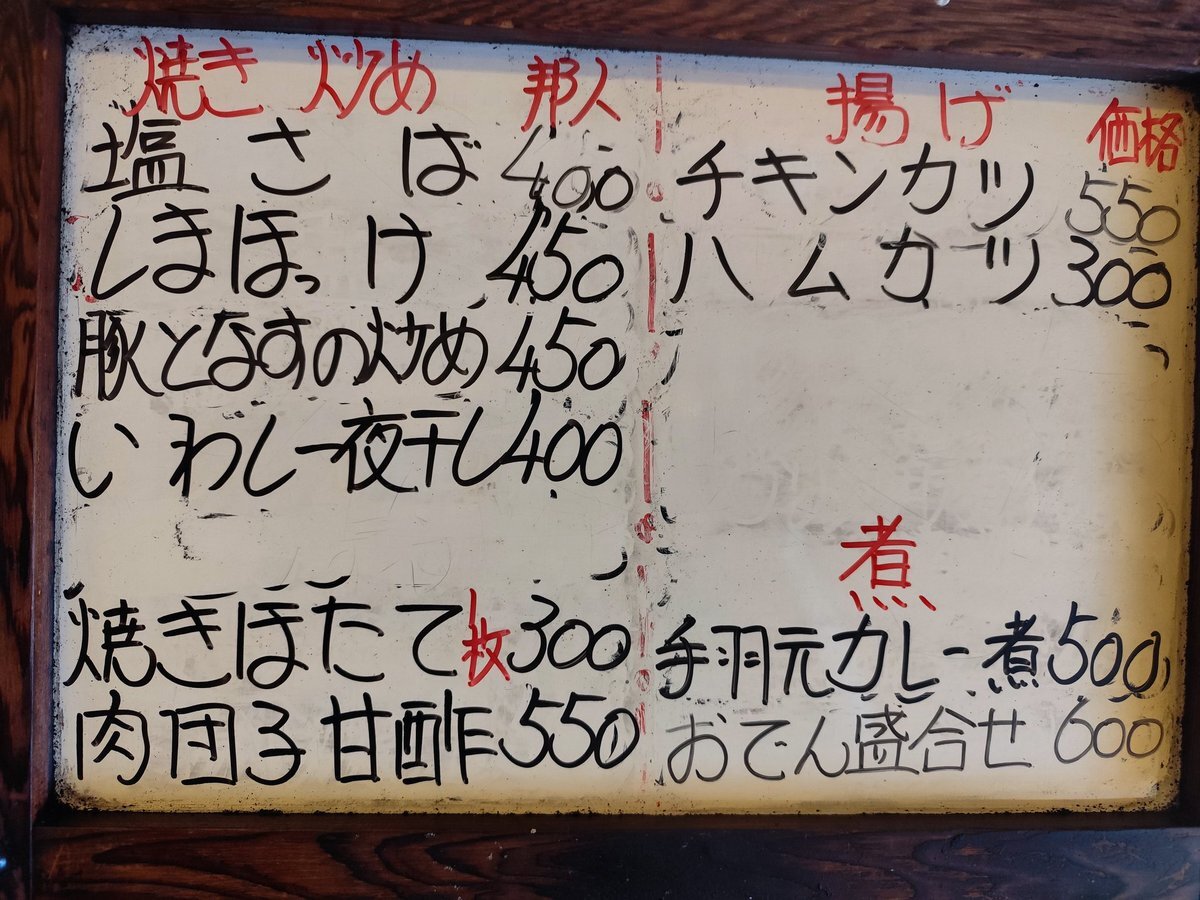 焼き 炒め 邦人
塩さば 400
しまほっけ 450
豚となすの炒め 450
いわし一夜干し 400
焼きほたて1枚 300
肉団子甘酢 550
揚げ 価格
チキンカツ 550
ハムカツ 300
煮
手羽元カレー煮 500
おでん盛合せ 600